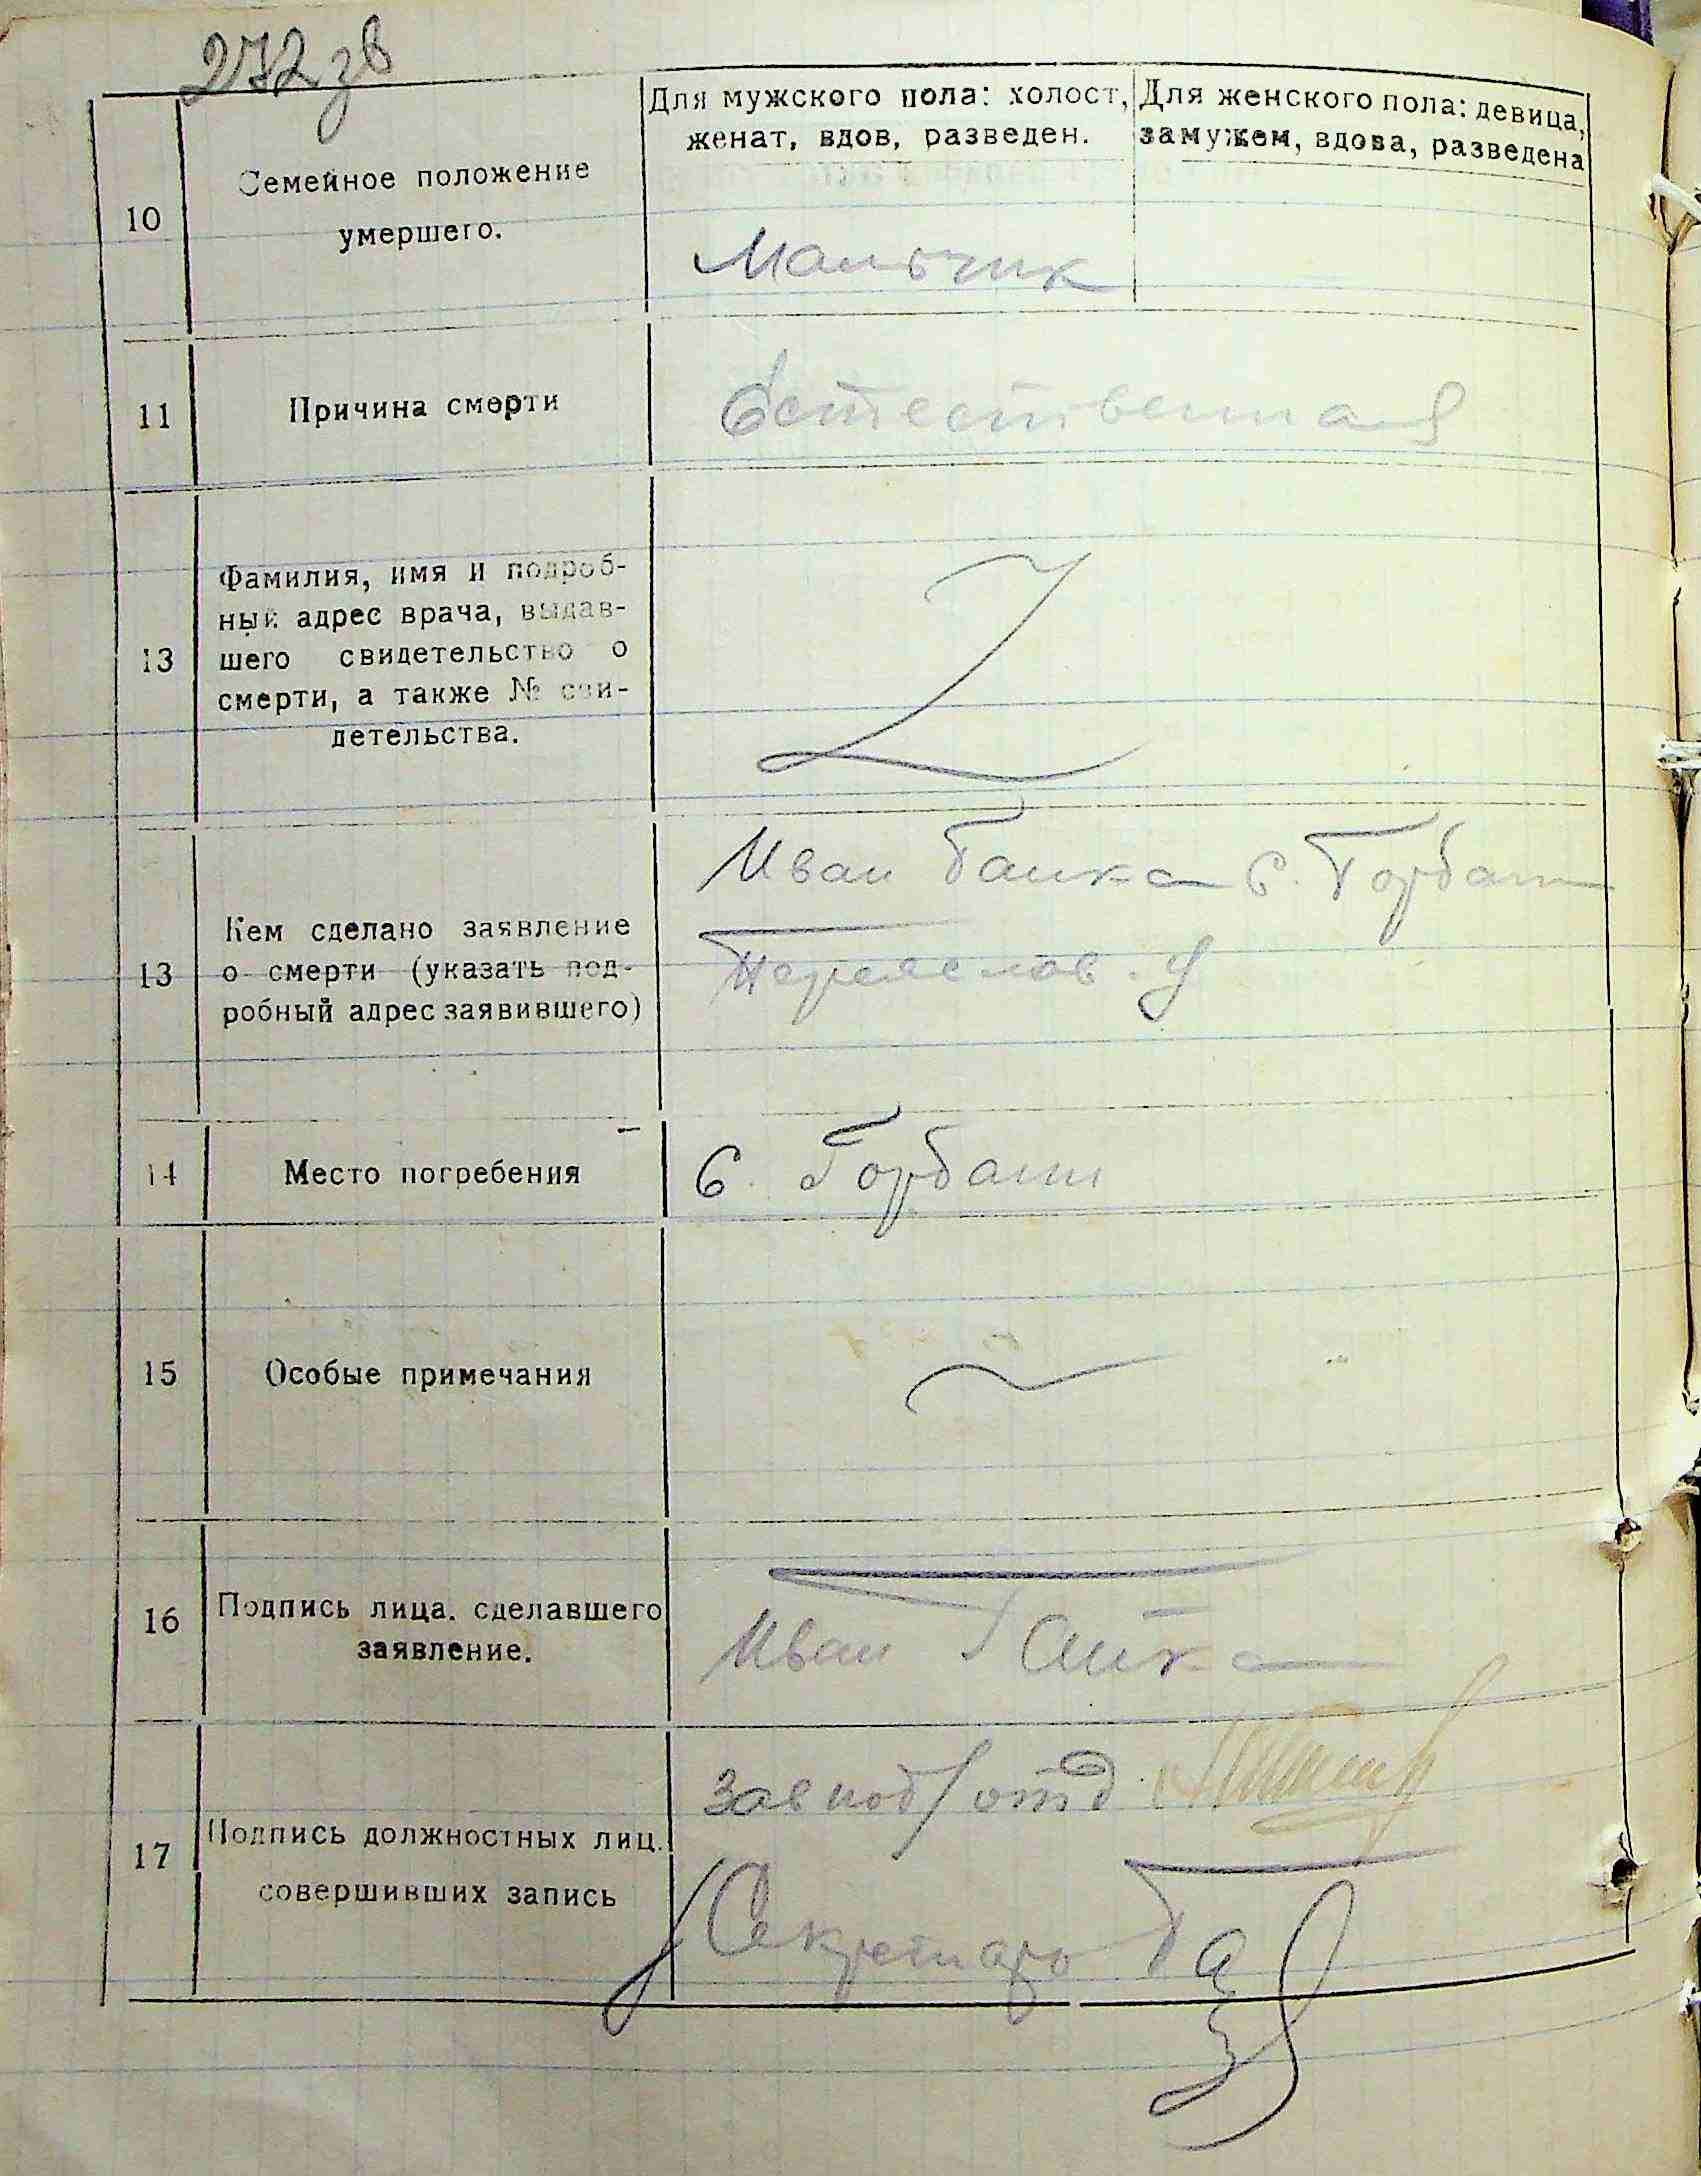 272 зв
Для мужского пола: холост,
женат, вдов, разведен.
Для женского пола: девица,
замужем, вдова, разведена
10
Семейное положение
умершего.
Мальчик
11
Причина смерти
Естественная
13
Фамилия, имя и подроб-
ный адрес врача, выдав-
шего свидетельство о
смерти, а также № сви-
детельства.
13
Кем сделано заявление
о смерти (указать под-
робный адрес заявившего)
Иван Гайка с. Горбани
Переяслов. у
14
Место погребения
С. Горбани
15
Особые примечания
16
Подпись лица. сделавшего
заявление.
Иван Гайка
17
Подпись должностных лиц.
совершивших запись
Зав под/отд
Секретарь